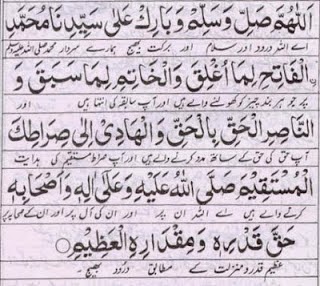 اَللّٰهُمَّ صَلِّ وَسَلِّمْ وَبَارِكْ عَلٰى سَيِّدِنَا مُحَمَّدِ
اے اللہ درود اور سلام اور برکت بھیج ہمارے سردار محمد صلی اللہ علیہ وسلم
الْفَاتِحِ لِمَا اُغْلِقَ وَالْخَاتِمِ لِمَا سَبَقَ وَ
پر جو ہر بند چیز کو کھولنے والے ہیں اور آپ سابقہ کی انتہا ہیں اور
النَّاصِرِ الْحَقِّ بِالْحَقِّ وَالْهَادِیْ اِلٰى صِرَاطِكَ
آپ حق کی حق کے ساتھ مدد کرنے والے ہیں اور آپ صراط مستقیم کی ہدایت
الْمُسْتَقِيْمِ صَلَّى اللّٰهُ عَلَيْهِ وَعَلٰى اٰلِهٖ وَاَصْحَابِهٖ
کرنے والے ہیں اے اللہ ان پر اور ان کی آل پر اور ان کے صحابہ پر
حَقَّ قَدْرِهٖ وَمِقْدَارِهِ الْعَظِيْمِ
عظیم قدر و منزلت کے مطابق درود بھیج ۔